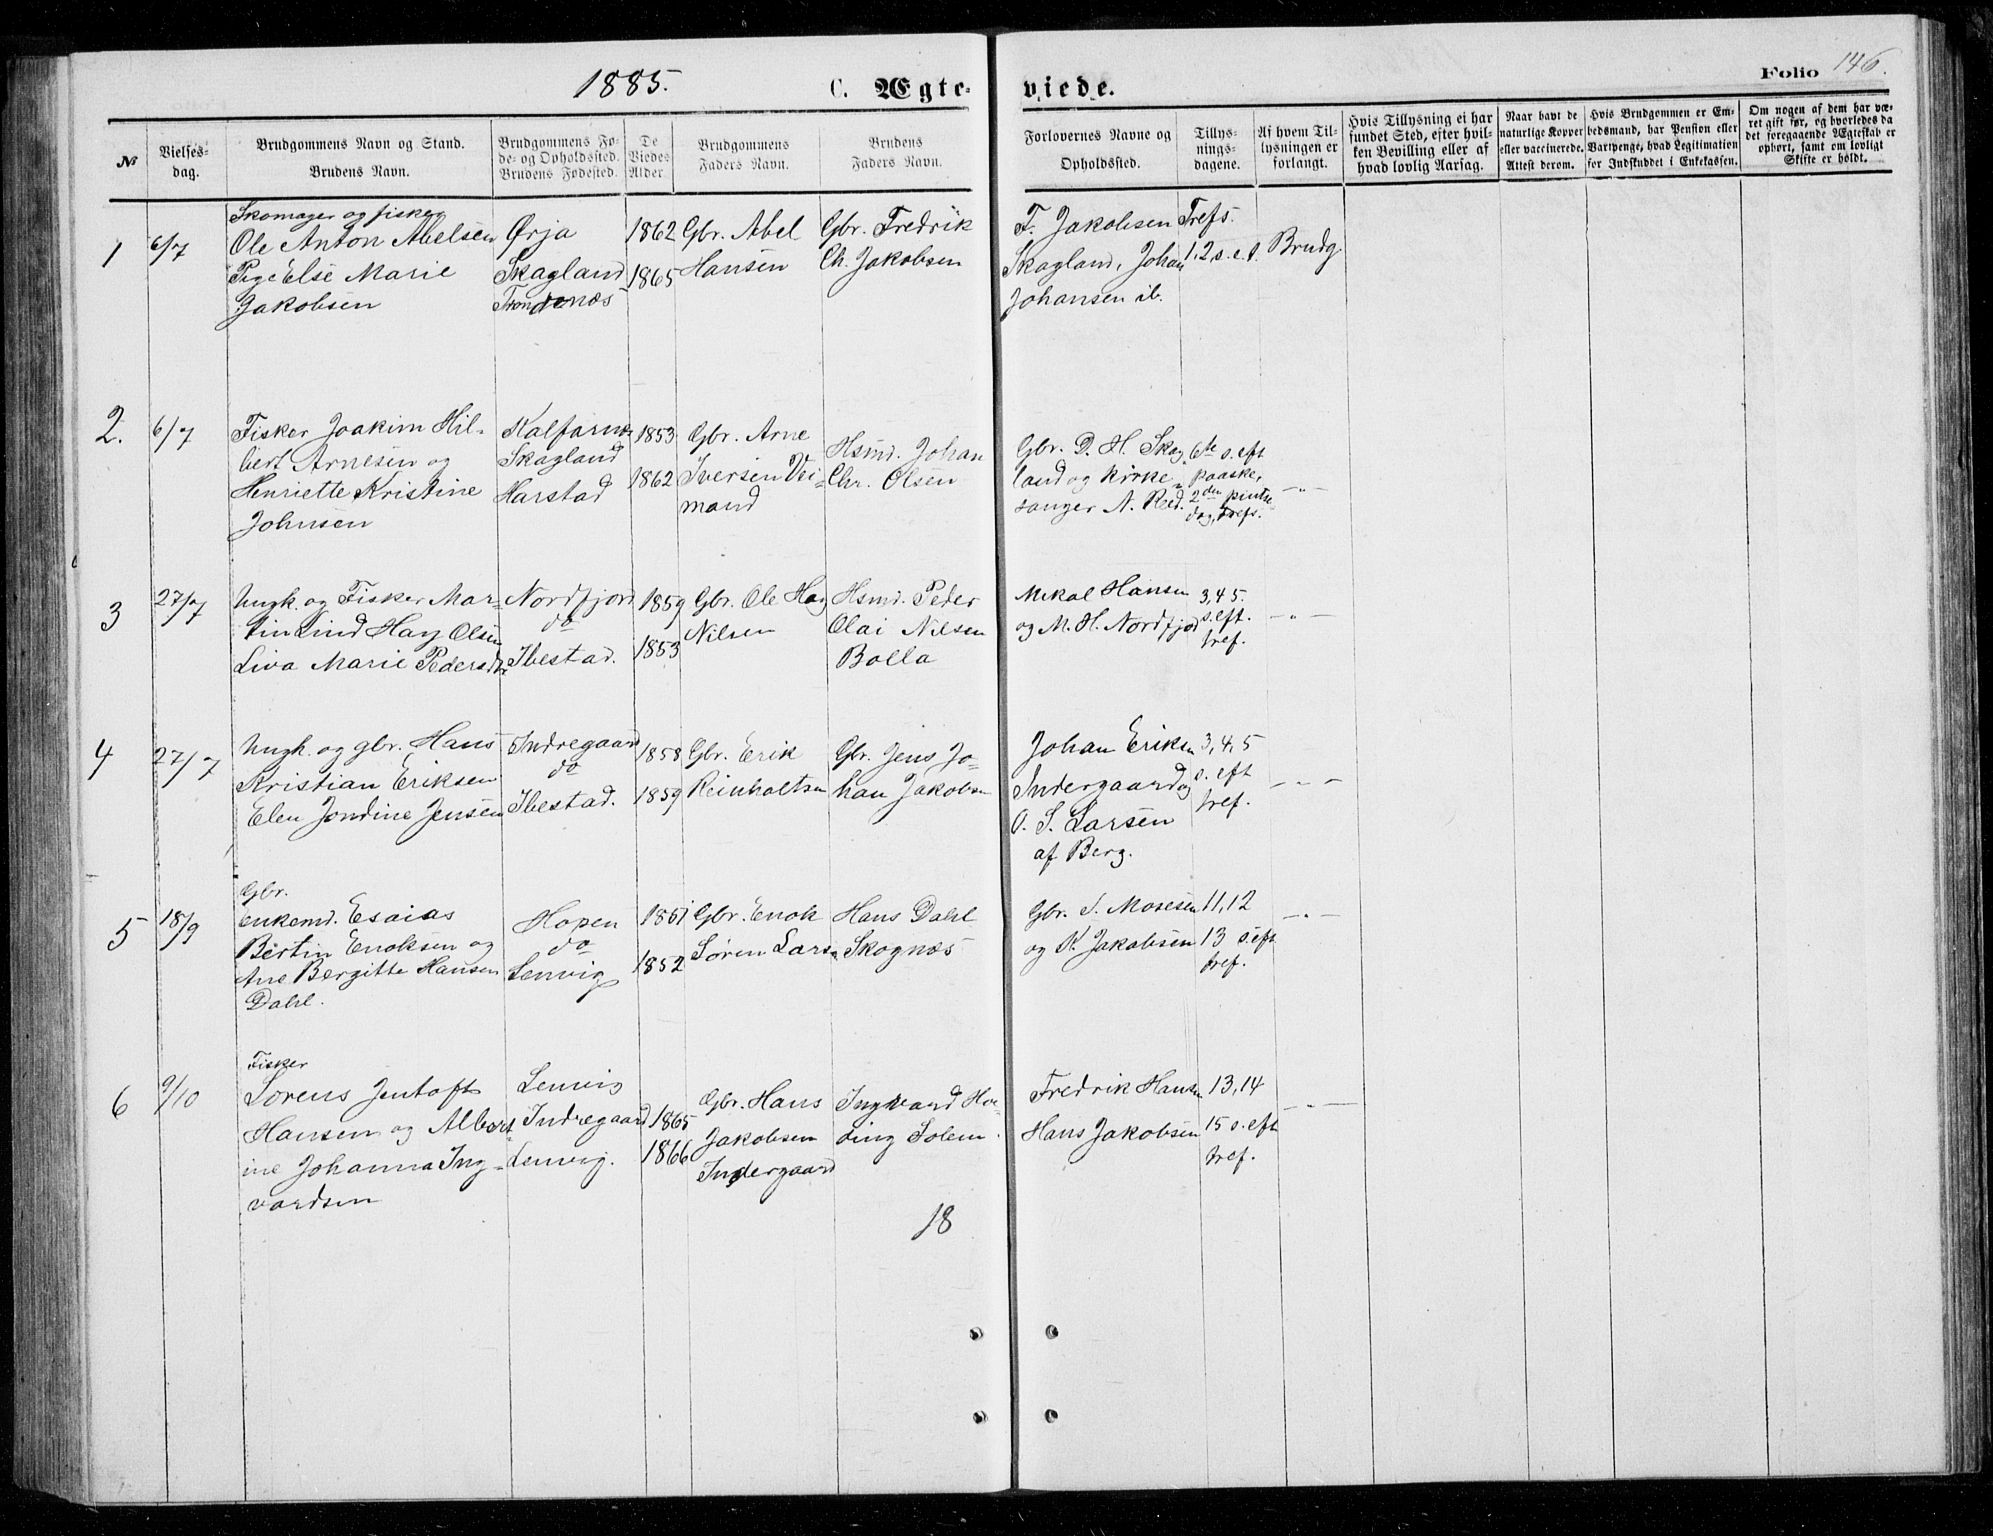 1885.
C. Ægte-
viede.
Folio 146.
№
Vielses-
dag.
Brudgommens Navn og Stand.
Brudens Navn.
Brudgommens Fø-
de- og Opholdssted.
Brudens Fødested.
De
Viedes
Alder.
Brudgommens
Faders Navn.
Brudens
Faders Navn.
Forlovernes Navne og
Opholdssted.
Tillys-
nings-
dagene.
Af hvem Til-
lysningen er
forlangt.
Hvis Tillysning ei har
fundet Sted, efter hvil-
ken Bevilling eller af
hvad lovlig Aarsag.
Naar havt de
naturlige Kopper
eller vaccinerede.
Attest derom.
Hvis Brudgommen er Em-
bedsmand, har Pension eller
Vartpenge, hvad Legitimation
for Indskuddet i Enkekassen.
Om nogen af dem har væ-
ret gift før, og hvorledes da
det foregaaende Ægteskab er
ophørt, samt om lovligt
Skifte er holdt.
1
6/7
Skomager og fisker
Ole Anton Abelsen
Pige Else Marie
Jakobsen
Ørja
Skagland
Trondenæs
1862
1865
Gbr. Abel
Hansen
Gbr. Fredrik
Ch. Jakobsen
F. Jakobsen
Skagland, Johan
Johansen ib.
Trefs.
1,2 s. e. t.
Brudg.
2.
6/7
Fisker Joakim Hil-
bert Arnesen og
Henriette Kristine
Johnsen
Kalfarnæs
Skagland
Harstad
1853
1862
Gbr. Arne
Iversen Vei-
mand
Hsmd. Johan
Chr. Olsen
Gbr. D. H. Skag-
land og kirke-
sanger N. Reed.
6te s. eft
paaske,
2den pintse
dag, trefs.
- " -
3
27/7
Ungk. og Fisker Mar-
tin Lind Hag Olsen
Liva Marie Pedersdtr
Nordfjord
do
Ibestad.
1859
1853
Gbr. Ole Hag
Nilsen
Hsmd. Peder
Olai Nilsen
Bolla
Mikal Hansen
og M. H. Nordfjod
3,4 5.
s. eft.
tref.
- " -
4
27/7
Ungk. og gbr. Hans
Kristian Eriksen
Elen Jondine Jensen
Indregaard
do
Ibestad.
1858
1859
Gbr. Erik
Reinholtsen
Gbr. Jens Jo-
han Jakobsen
Johan Eriksen
Indergaard og
O. S. Larsen
af Berg.
3, 4, 5
s. eft
tref.
- " -
5
18/9
Gbr.
enkemd. Esaias
Bertin Enoksen og
Ane Bergitte Hansen
Dahl.
Hopen
do
Lenvig
1852
Gbr. Enok
Søren Larsen
Hans Dahl
Skognæs
Gbr. S. Mosesen
og K. Jakobsen
11, 12
13 s. eft
tref.
- " -
6
9/10
Fisker
Lorens Jentoft
Hansen og Albert-
ine Johanna Ing-
vardsen
Lenvig
Indregaard
Lenvig.
1865
1866
Gbr. Hans
Jakobsen
Indergaard
Ingvard Hve-
ding Solem.
Fredrik Hansen
Hans Jakobsen
13, 14
15 s. eft
tref.
- " -
18